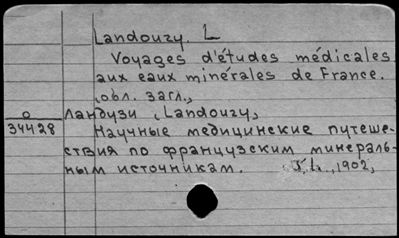 Landouzy. L
Voyages d'études médicales
aux eaux minérales de France.
(обл. загл.)
Ландузи (Landouzy)
0
34428
Научные медицинские путеше-
ствия по французским минераль-
ным источникам. , 1902,